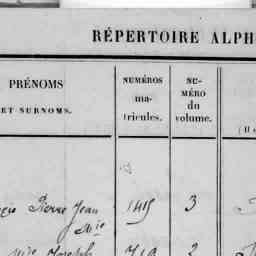 RÉPERTOIRE ALPH
PRÉNOMS
ET SURNOMS.
NUMÉROS
ma-
tricules.
NU-
MÉRO
du
volume.
Pierre Jean 1415 3
Mie
Joseph